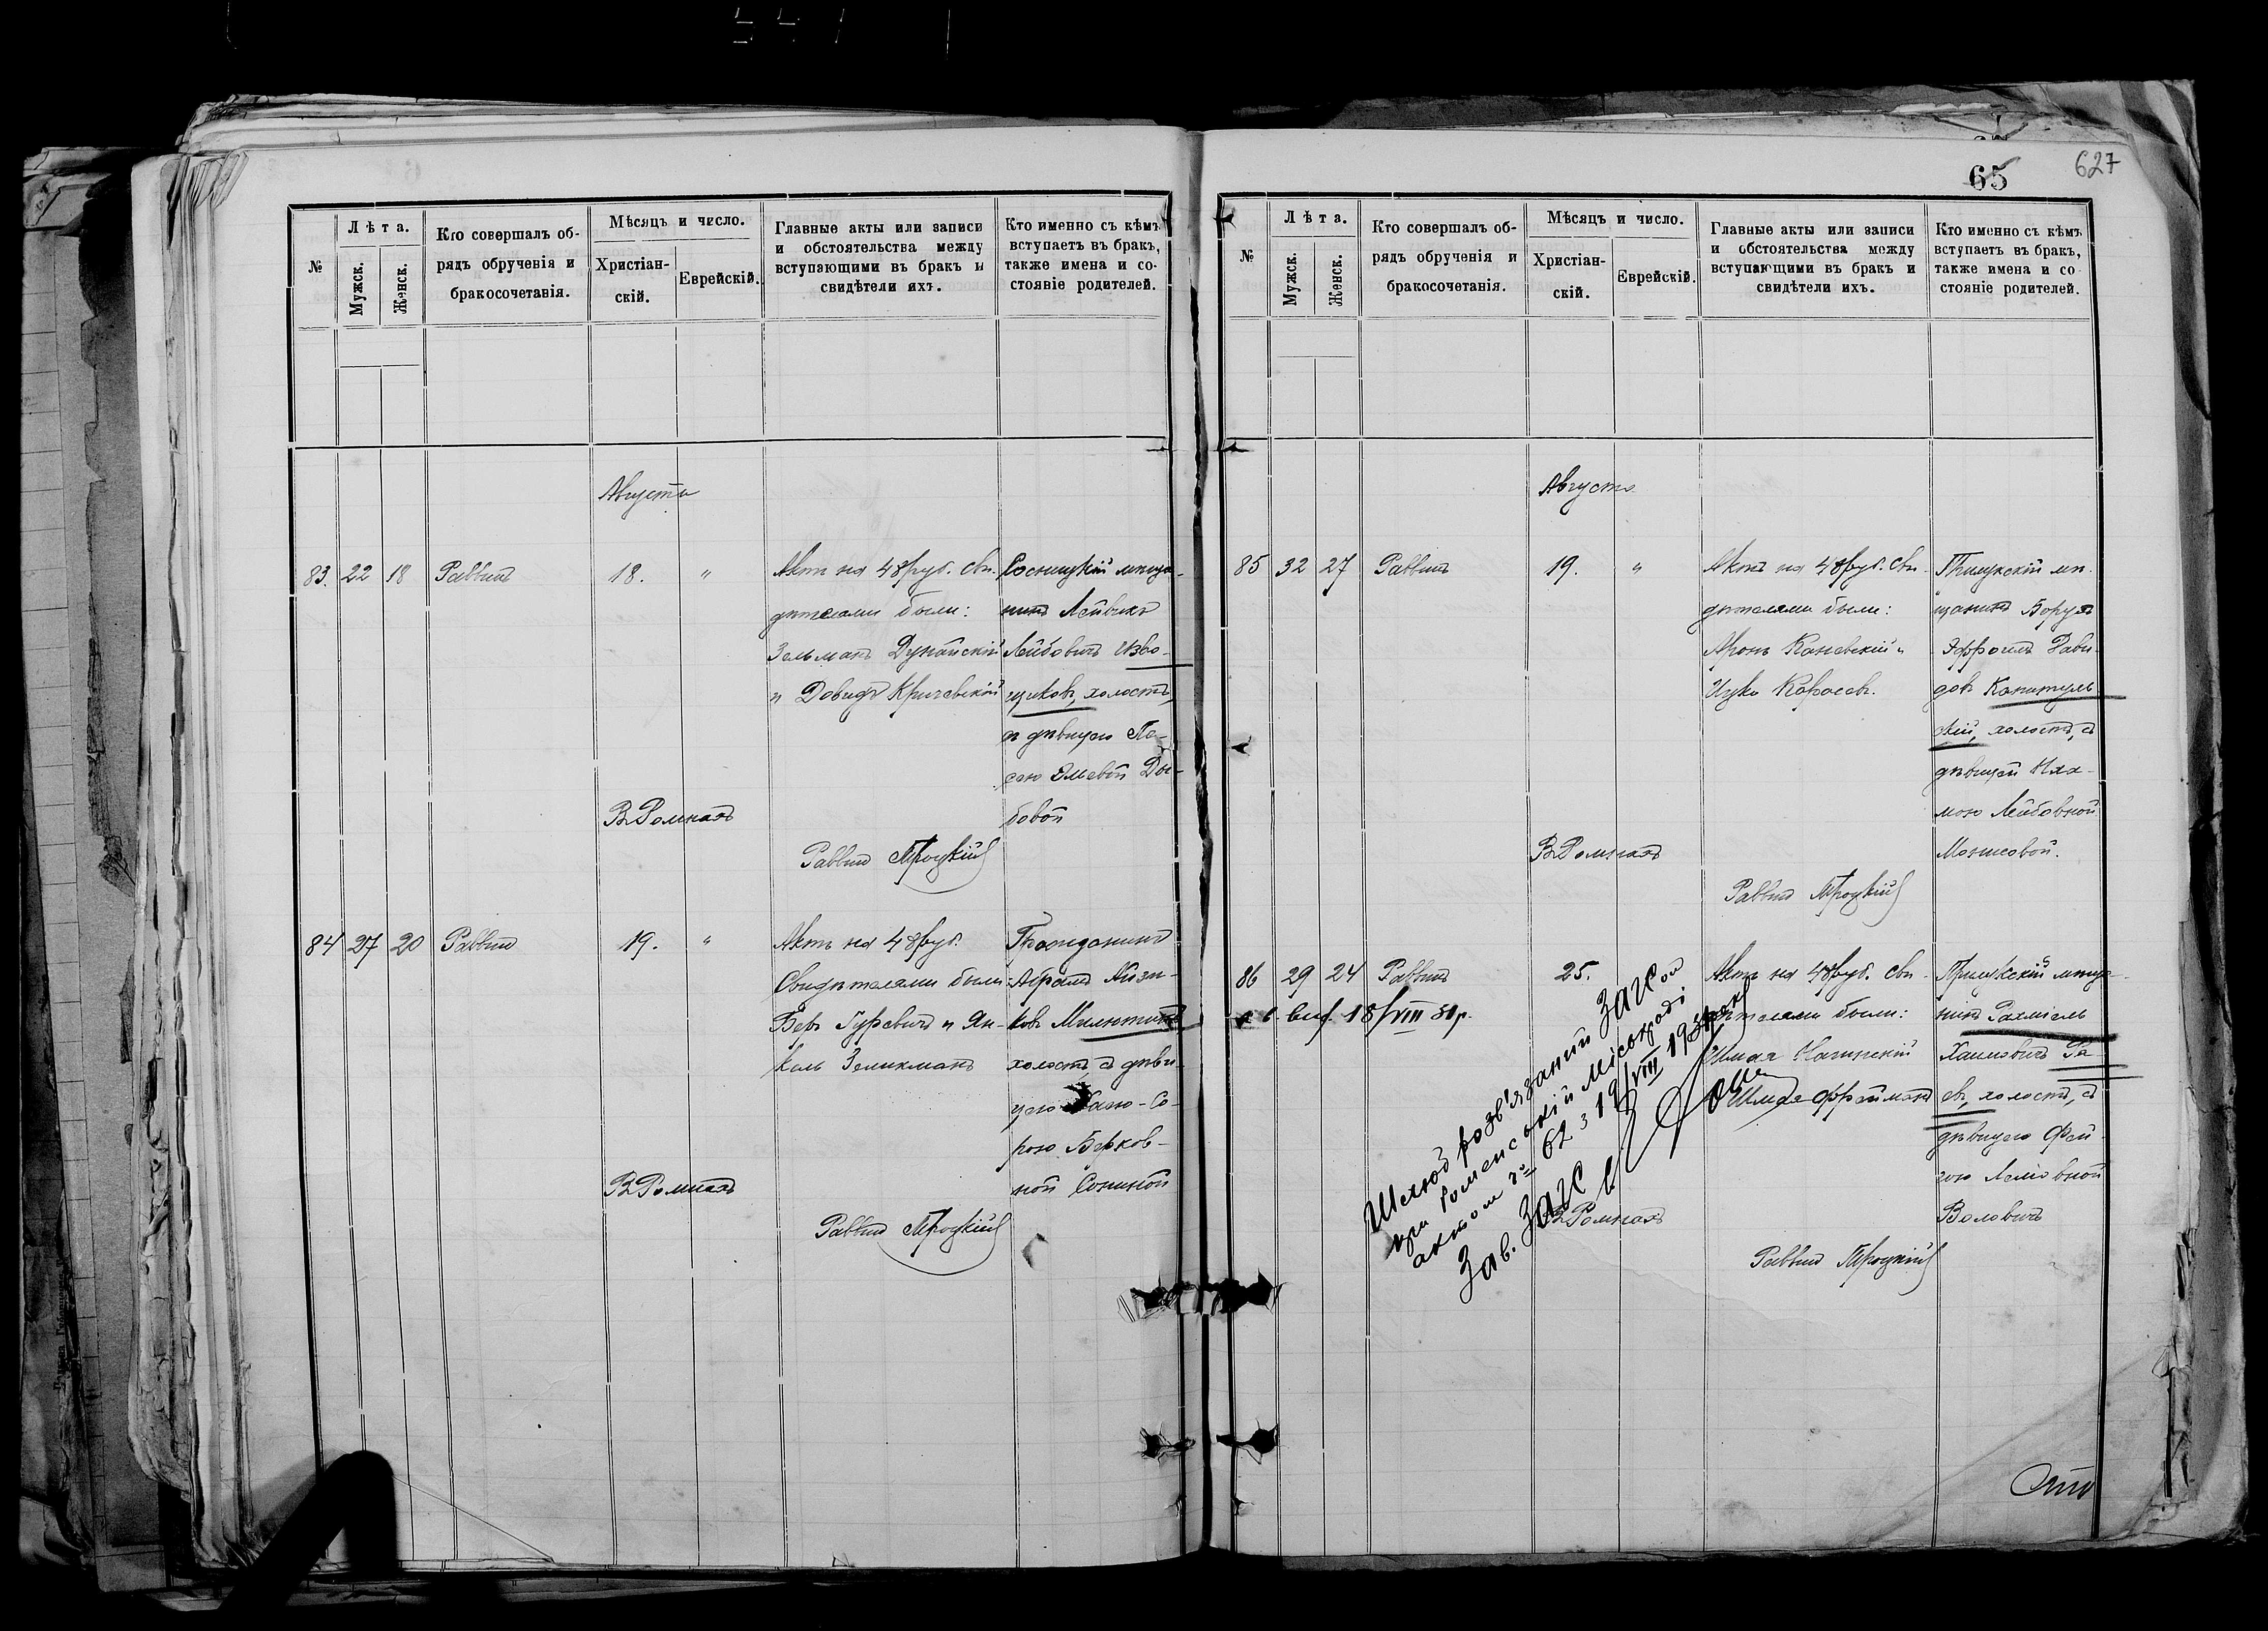 65
627
№
Лѣта.
Мужск.
Женск.
Кто совершалъ об-
рядъ обрученія и
бракосочетанія.
Мѣсяцъ и число.
Христіан-
скій.
Еврейскій.
Главные акты или записи
и обстоятельства между
вступающими въ бракъ и
свидѣтели ихъ.
Кто именно съ кѣмъ
вступаетъ въ бракъ,
также имена и со-
стояніе родителей.
Августа
83. 22 18 Раввинъ 18. "
Актъ на 48 руб. Сви-
дѣтелями были:
Зельманъ Дунайскій
и Довидъ Кричевскій
Сосницкій мѣща-
нинъ Лейвикъ
Лейбовичъ Изво-
щиковъ, холостъ,
съ дѣвицею Пе-
сею
бовой
Въ Ромнахъ
Раввинъ Троцкій
84 27 20 Раввинъ 19. "
Актъ на 48 руб.
Свидѣтелями были
Беръ Гуревичъ и Ян-
кель Зеликманъ
Гражданинъ
Абрамъ
ковъ Милютинъ
холостъ, съ дѣви-
цею Со-
рою Берков-
ной Сониной
Въ Ромнахъ
Раввинъ Троцкій
№
Лѣта.
Мужск.
Женск.
Кто совершалъ об-
рядъ обрученія и
бракосочетанія.
Мѣсяцъ и число.
Христіан-
скій.
Еврейскій.
Главные акты или записи
и обстоятельства между
вступающими въ бракъ и
свидѣтели ихъ.
Кто именно съ кѣмъ
вступаетъ въ бракъ,
также имена и со
стояніе родителей.
Августа
85 32 27 Раввинъ 19. "
Актъ на 48 руб. Сви-
дѣтелями были:
Аронъ Каневскій и
Ицко Карасевъ.
Прилукскій мѣ-
щанинъ Борухъ
Эфроимъ Дави-
довъ Капитуль-
скій, холостъ, съ
дѣвицей Нха-
мою Лейбовной
Мозисовой.
Въ Ромнахъ
Раввинъ Троцкій
86 29 24 Раввинъ 25.
Актъ на 48 руб. Сви-
дѣтелями были:
Шмая
Шмая Фрейманъ
Прилукскій мѣща-
нинъ Рахміель
Хаимовичъ Га-
евъ, холостъ, съ
дѣвицею Фей-
гою
Воловичъ
18/VIII 31р.
Шлюб розв'язаний ЗАГСом
при Роменській міськраді
актом № 62 з 19/VIII 1931 року
Зав. ЗАГС
Въ Ромнахъ
Раввинъ Троцкій